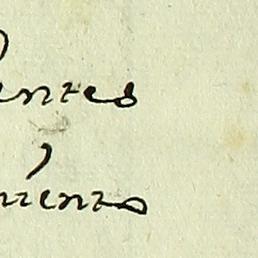 entes
,
mento